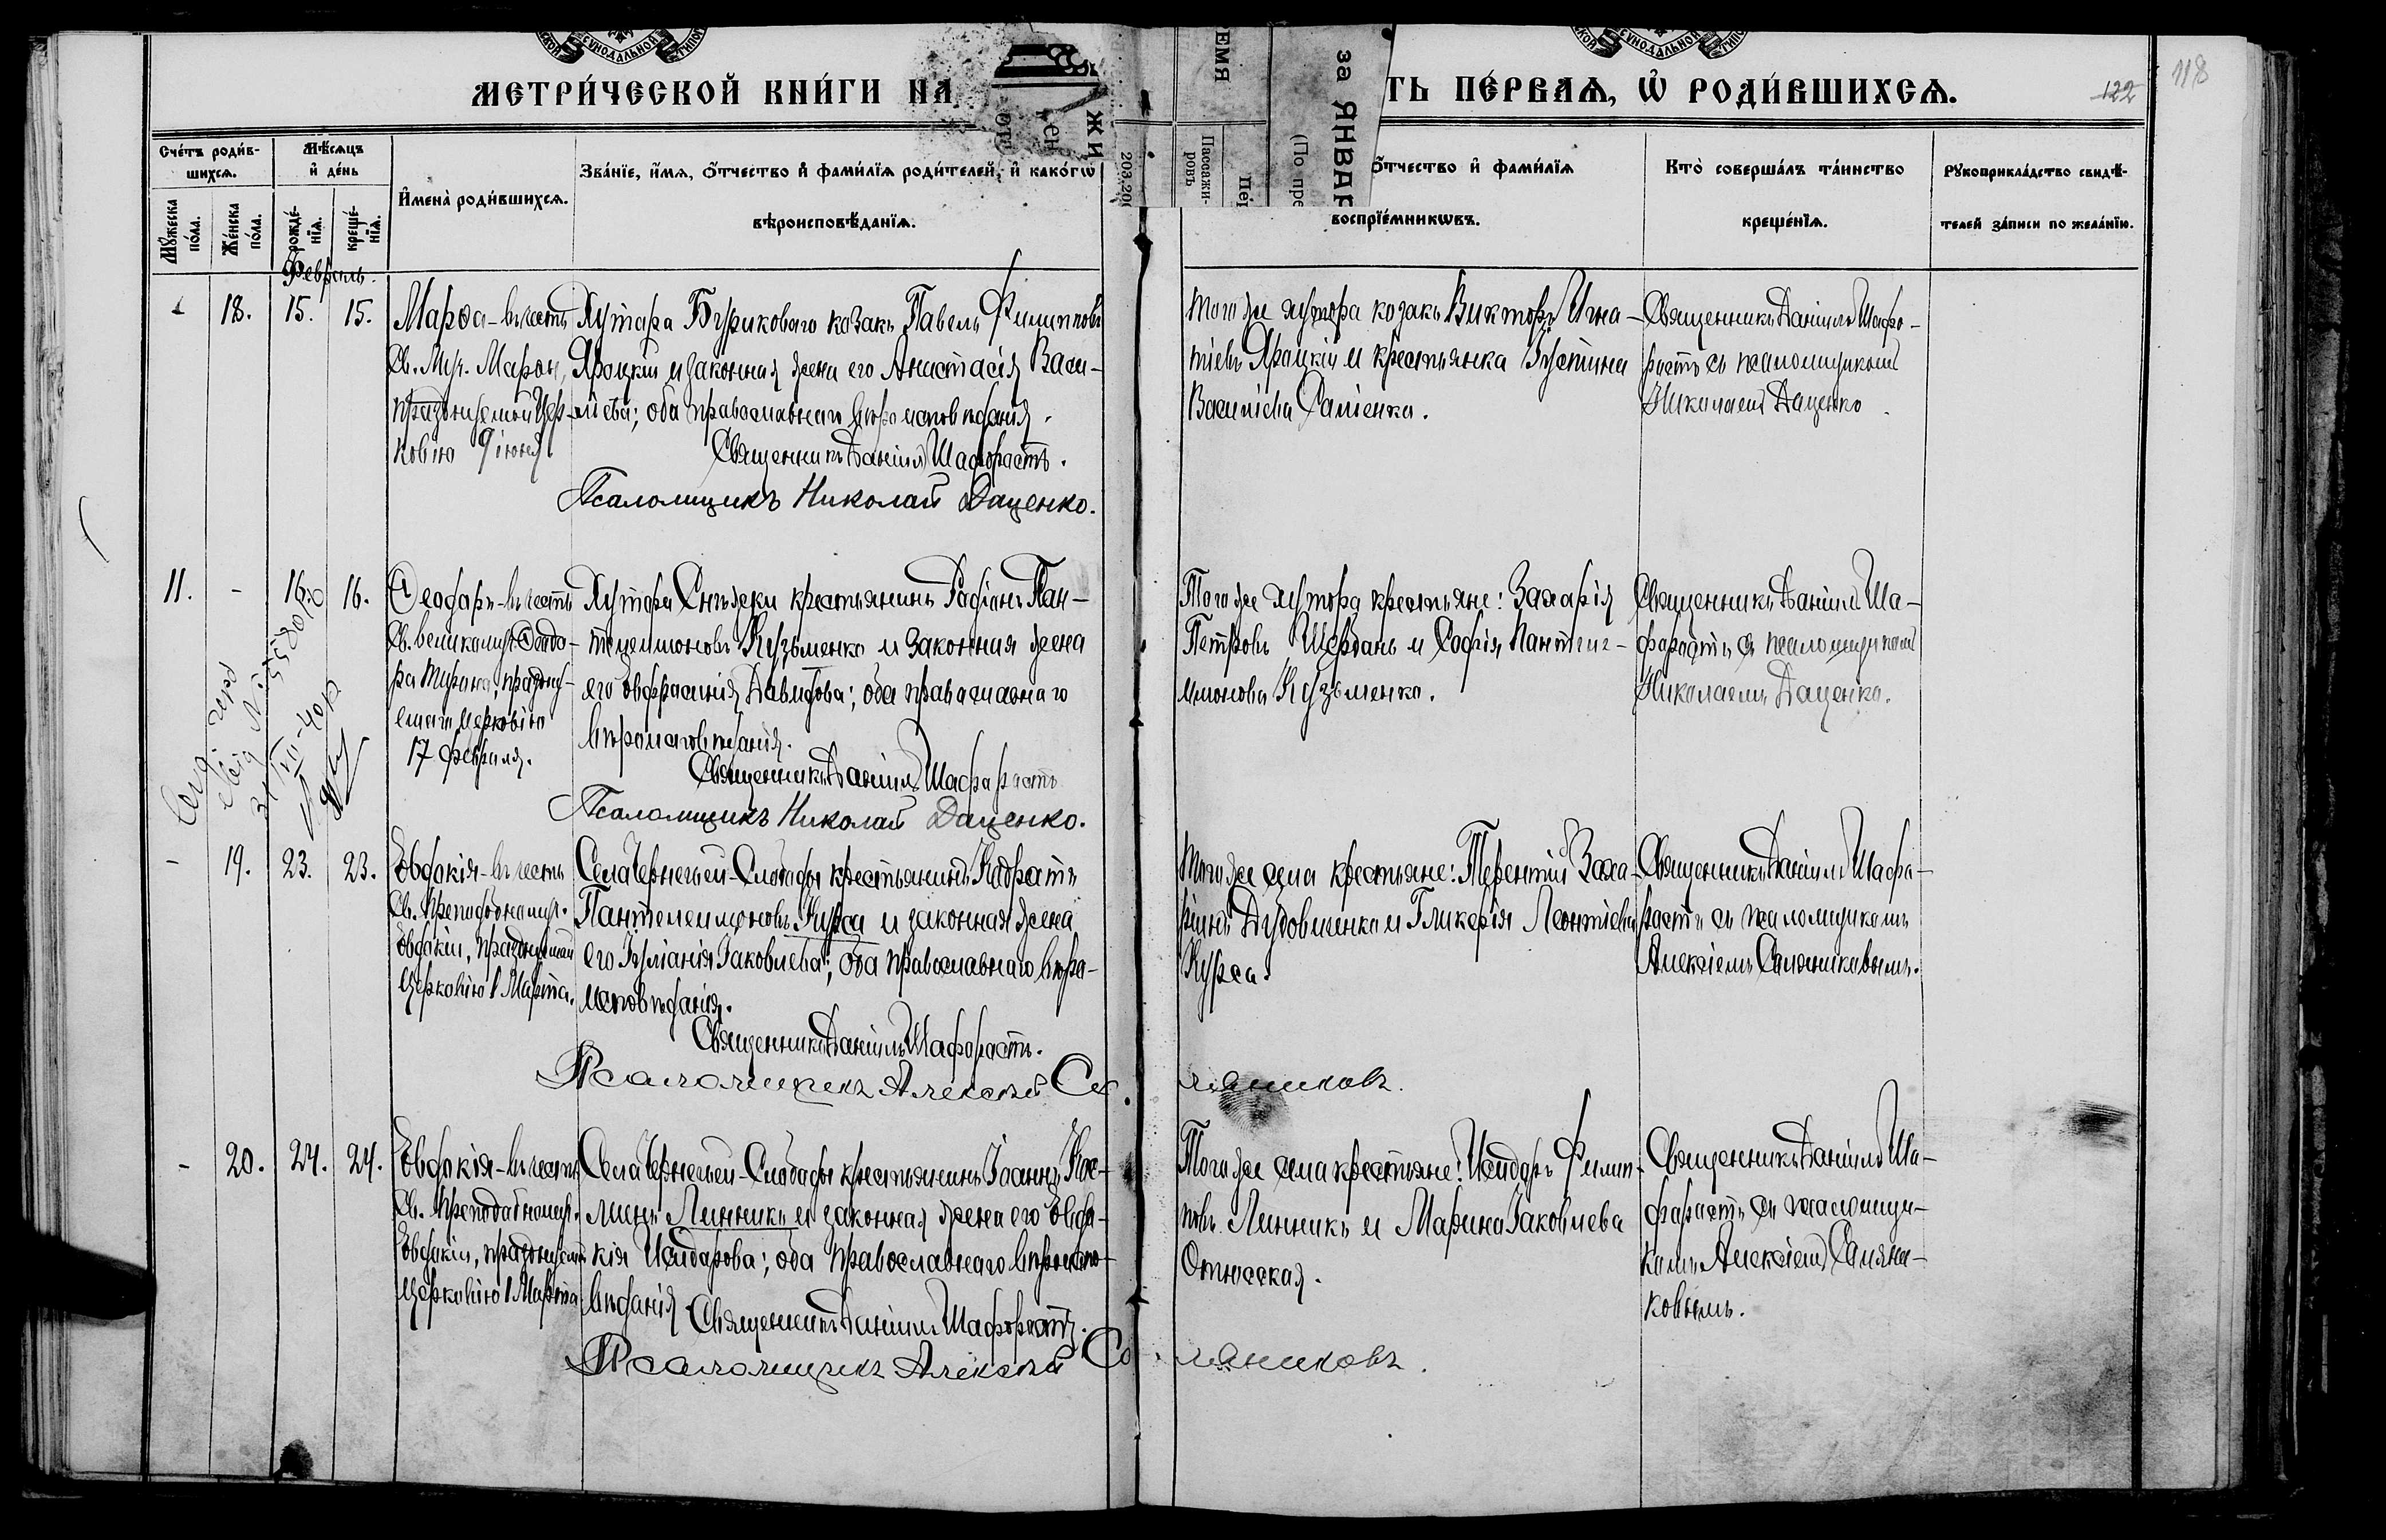 МЕТРИ́ЧЕСКОЙ КНИ́ГИ НА
ТЬ ПЕ́РВАѦ, Ѡ҆ РОДИ́ВШИХСѦ.
122
118
за ЯНВАР
(По пре
Пассажи-
ровъ
Счетъ роди́в-
шихсѧ.
Мѣ́сѧцъ
и҆ де́нь
Мꙋ́жеска по́ла.
Же́нска по́ла.
рожде́-нїѧ.
креще́-нїѧ.
И҆мена̀ роди́вшихсѧ.
Зва́нїе, и҆́мѧ, ѻ҆́тчество и҆ фами́лїѧ роди́телей, и҆ како́гѡ
вѣроисповѣ́данїѧ.
ѻ҆́тчество и҆ фами́лїѧ
воспрїе́мникѡвъ.
Кто̀ соверша́лъ та́инство
креще́нїѧ.
Рꙋкоприкла́дство свидѣ́-
телей за́писи по жела́нїю.
Февраль.
18. 15. 15.
Марѳа - въ честь
Св. Муч. Марѳы,
празднуемой Цер-
ковію 9 іюня
Хутора Бурикового козакъ Павелъ Филипповъ
Яроцкій и законная жена его Анастасія Васи-
ліева; оба православнаго вѣроисповѣданія.
Священникъ Даніилъ Шафорастъ.
Псаломщикъ Николай Даценко.
Того же хутора козакъ Викторъ Игна-
тіевъ Яроцкій и крестьянка Іустина
Василіева Саіенко.
Священникъ Даніилъ Шафо-
растъ съ псаломщикомъ
Николаемъ Даценко
11. - 16. 16.
Ѳеодоръ - въ честь
Св. великомуч. Ѳеодо-
ра Тирона, праздну-
емаго Церковію
17 февраля.
Хутора Снѣжки крестьянинъ Родіонъ Пан-
телеимоновъ Кузьменко и законная жена
его Евфросинія Давидова; оба православнаго
вѣроисповѣданія.
Священникъ Даніилъ Шафорастъ
Псаломщикъ Николай Даценко.
Того же хутора крестьяне: Захарія
Петровъ Щербань и Софія Пантеле-
имонова Кузьменко.
Священникъ Даніилъ Ша-
форастъ съ псаломщикомъ
Николаемъ Даценко.
- 19. 23. 23.
Евдокія - въ честь
Св. Преподобномуч.
Евдокіи, празднуемой
Церковію 1 Марта.
Села Чернечей-Слободы крестьянинъ Кодратъ
Пантелеимоновъ Курса и законная жена
его Іуліанія Іаковлева; оба православнаго вѣро-
исповѣданія.
Священникъ Даніилъ Шафорастъ.
Псаломщикъ Алексѣй Са
ляниковъ.
Того же села крестьяне: Терентій Заха-
ріинъ Дудовченко и Гликерія Леонтіева
Курса.
Священникъ Даніилъ Шафо-
растъ съ псаломщикомъ
Алексіемъ Саляниковымъ.
- 20. 24. 24.
Евдокія - въ честь
Св. Преподобномуч.
Евдокіи, празднуемой
Церковію 1 Марта
Села Чернечей-Слободы крестьянинъ Іоаннъ Кос-
минъ Линникъ и законная жена его Евдо-
кія Исидорова; оба православнаго вѣроиспо-
вѣданія Священникъ Даніилъ Шафорастъ.
Псаломщикъ Алексѣй Са
ляниковъ.
Того же села крестьяне: Исидоръ Филип-
повъ Линникъ и Марина Іаковлева
Священникъ Даніилъ Ша-
форастъ съ псаломщи-
комъ Алексіемъ Саляни-
ковымъ.